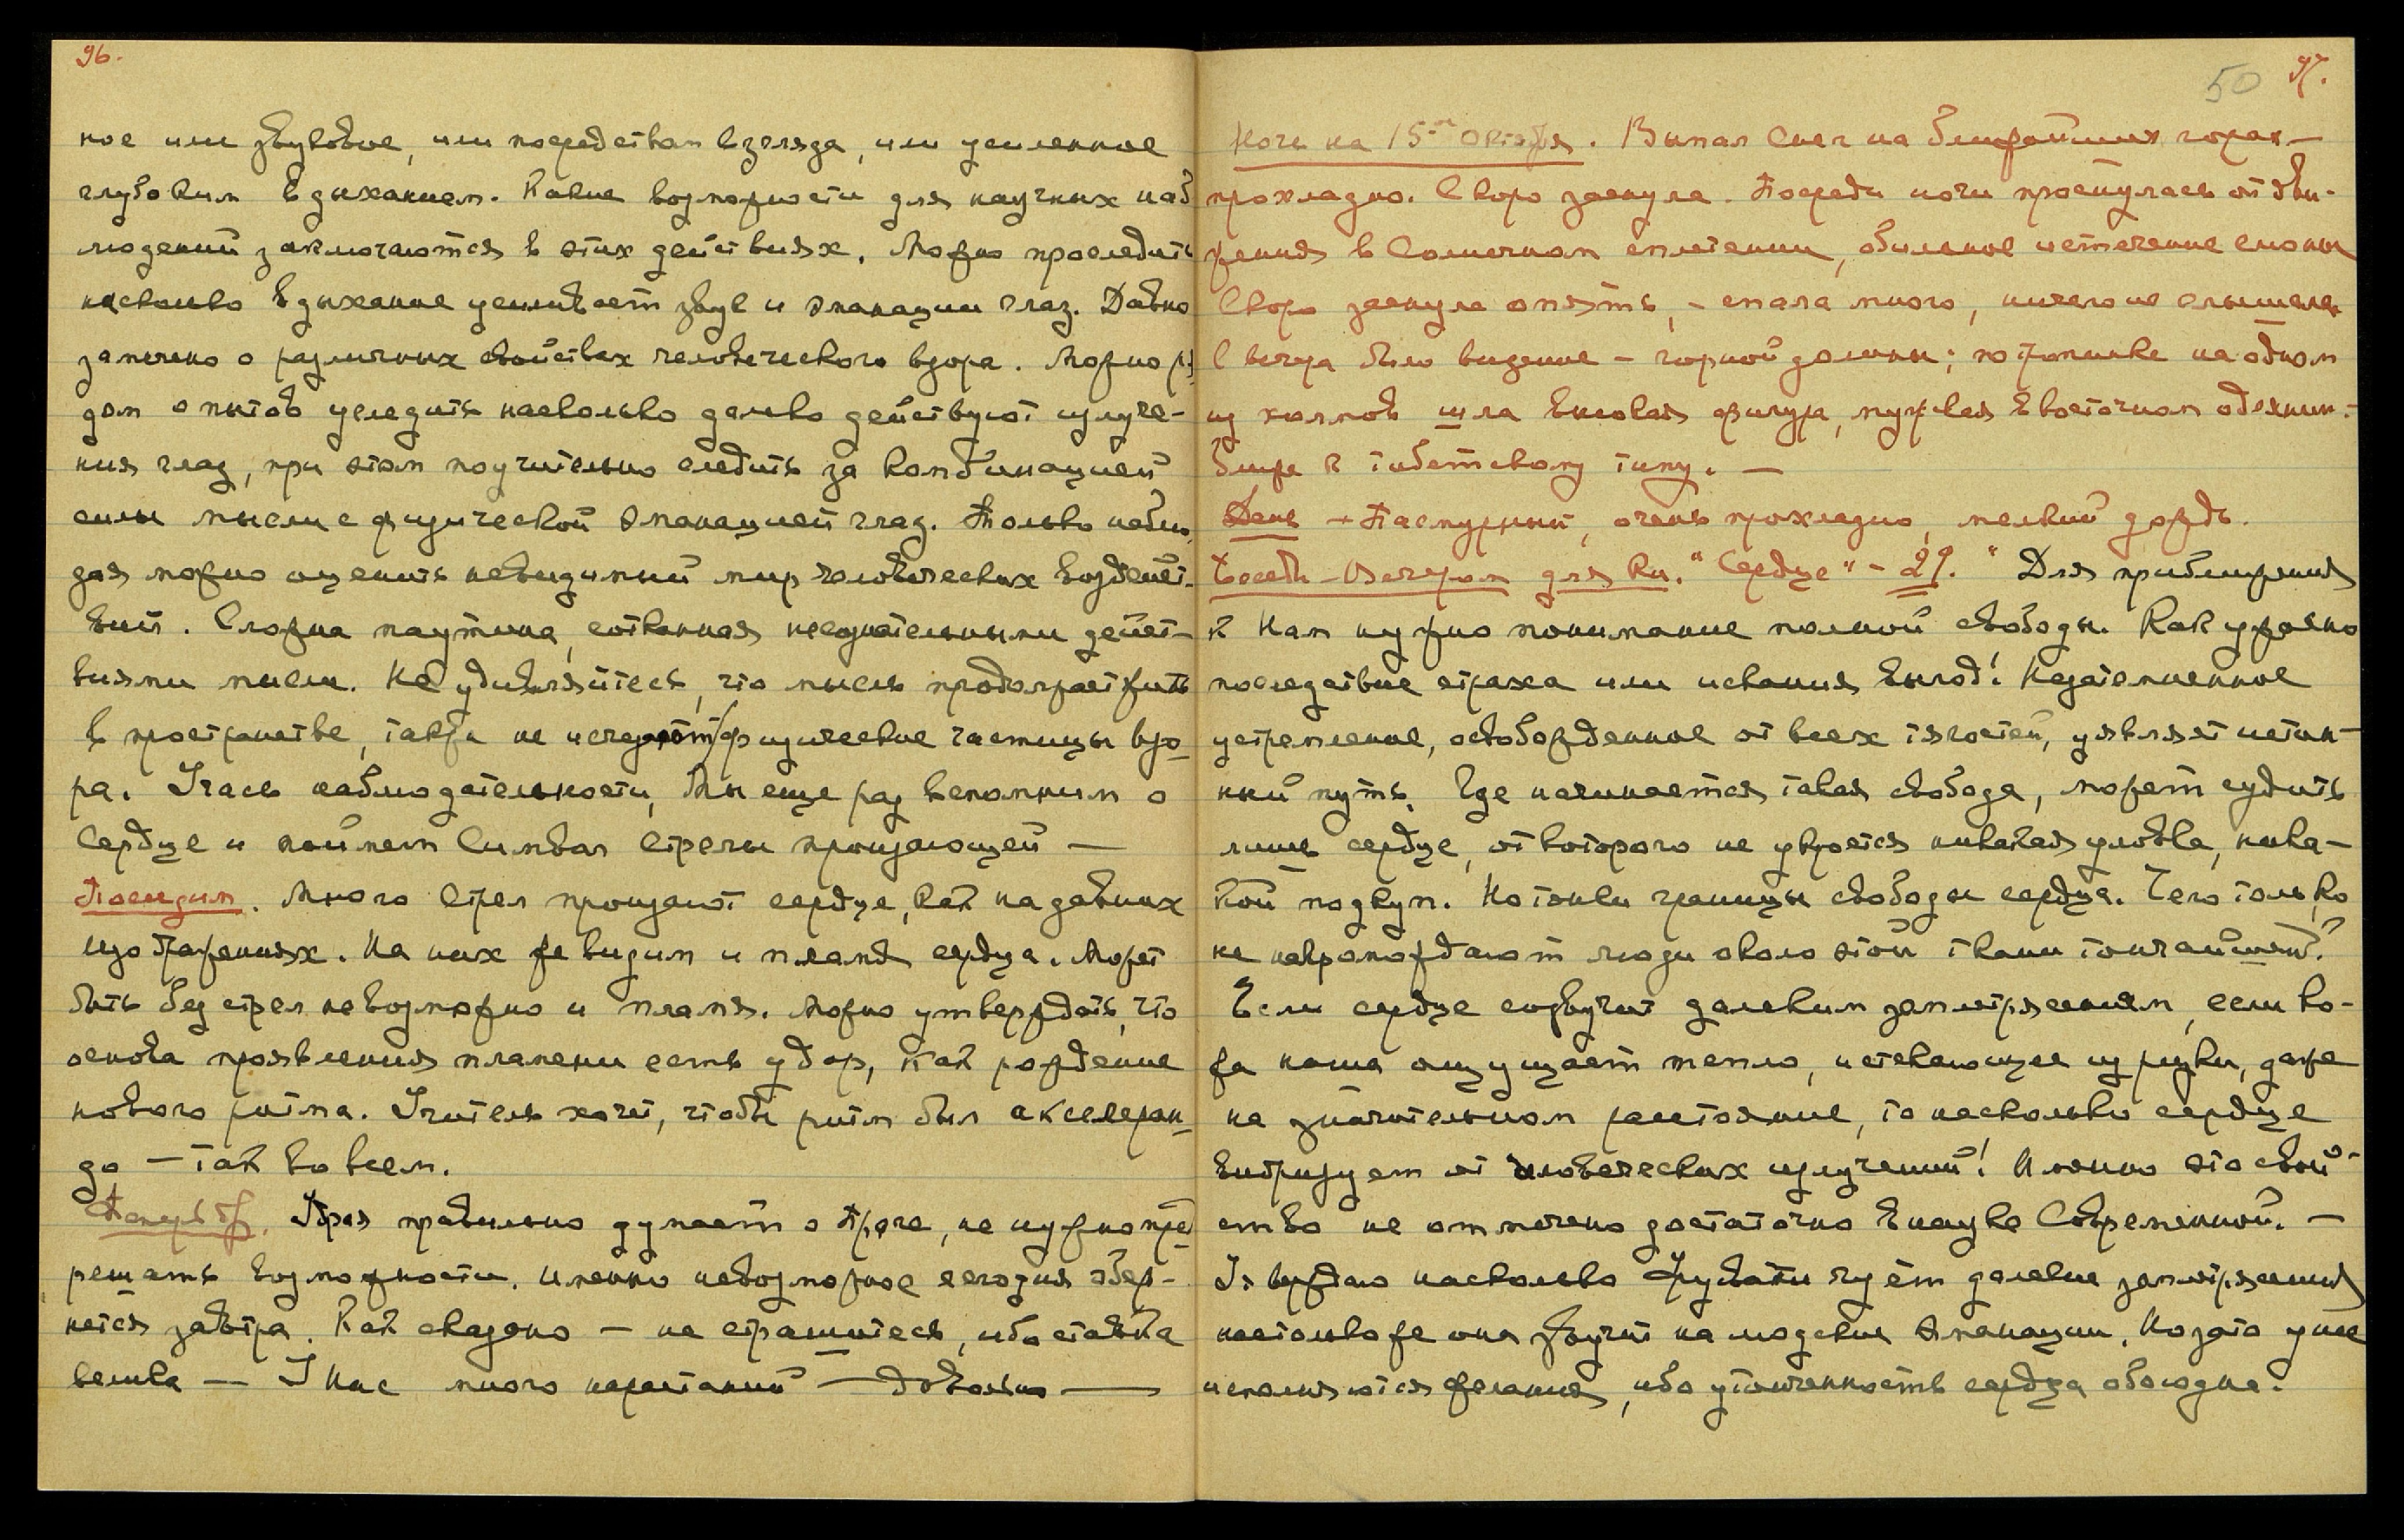 96.
ное или звуковое, или посредством взгляда, или усиленное
глубоким вдыханием. Какие возможности для научных наб
людений заключаются в этих действиях. Можно проследить
насколько вдыхание усиливает звук и эманации глаз. Давно
замечено о различных свойствах человеческого взора. Можно ря
дом опытов уследить насколько далеко действуют излуче-
ния глаз, при этом поучительно следить за комбинацией
силы мысли с физической эманацией глаз. Только наблю
дая можно оценить невидимый мир человеческих воздейст-
вий. Сложна паутина, сотканная несознательными дейст-
виями мысли. Не удивляйтесь, что мысль продолжает жить
в пространстве, также не исчезают физические частицы взо
ра. Учась наблюдательности, Мы еще раз вспомним о
Сердце и поймем Символ Стрелы пронзающей —
Посидим. Много Стрел пронзают сердце, как на давних
изображениях. На них же видим и пламя сердца. Может
быть без стрел невозможно и пламя. Можно утверждать, что
основа проявления пламени есть удар, как рождение
нового ритма. Учитель хочет, чтобы ритм был акселеран
до — так во всем.
правильно думает о не нужно пре
решать возможности. Именно невозможное сегодня обер-
нется завтра. Как сказано — не страшитесь, ибо ставка
велика — У Нас много нарастаний — довольно —
50 97.
Ночь на 15-ое Октября. Выпал снег на ближайших горах —
прохладно. Скоро заснула. Посреди ночи проснулась от дви-
жения в Солнечном сплетении, обильное истечение слюны
Скоро заснула опять, – спала много, ничего не слышала
С вечера было видение – горной долины; по тропинке на одном
из холмов шла высокая фигура, мужская в восточном одеянии.-
ближе к тибетскому типу. —
День – Пасмурный, очень прохладно, мелкий дождь.
Беседы – Вечером для Кн. "Сердце" – 29. " Для приближения
к Нам нужно понимание полной свободы. Как ужасно
последствие страха или искания выгод! Незатемненное
устремление, освобожденное от всех тягостей, уявляет истин-
ный путь. Где начинается такая свобода, может судить
лишь сердце, от которого не укроется никакая уловка, ника-
кой подкуп. Но тонки границы свободы сердца. Чего только
не нагромождают люди около этой ткани тончайшей!
Если сердце созвучит далеким землетрясениям, если ко-
жа наша ощущает тепло, истекающее из руки, даже
на значительном расстояние, то насколько сердце
вибрирует от человеческих излучений! Именно это свой-
ство не отмечено достаточно в науке Современной. —
Утверждаю насколько чует далекие землетрясения
настолько же она звучит на людские эманации. Но зато у нее
исполняются желания, ибо утонченность сердца обоюдна.